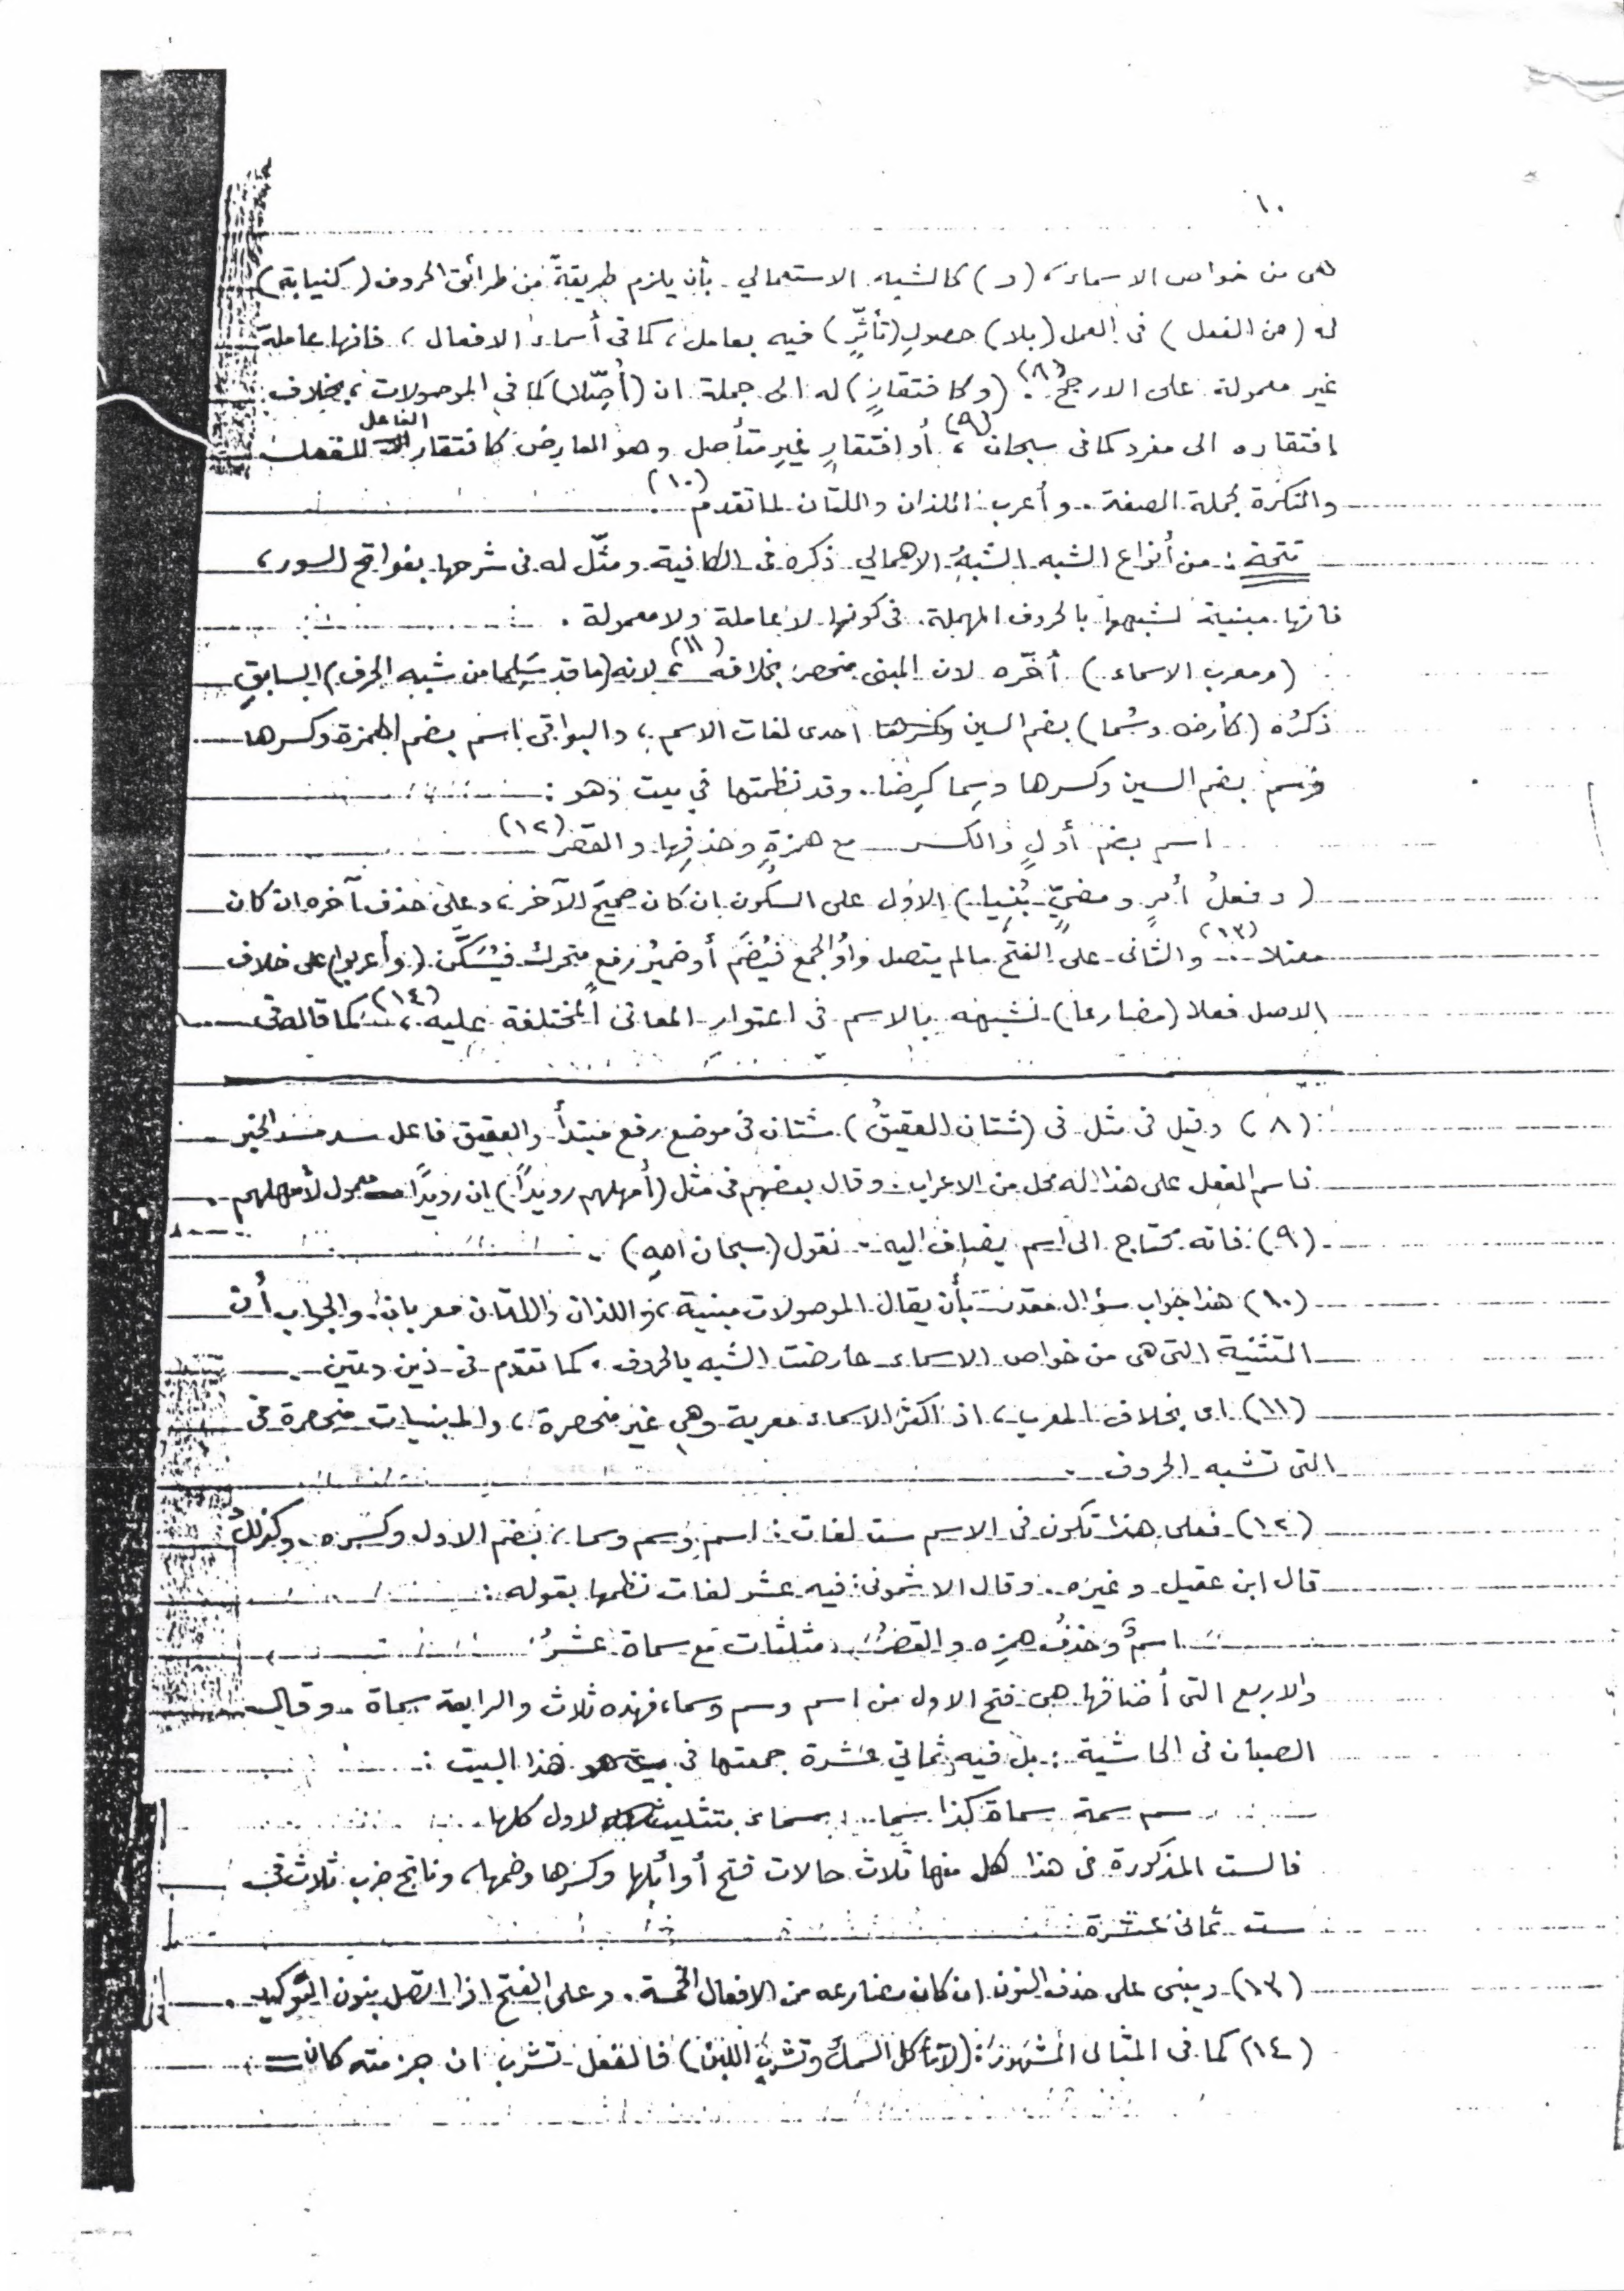 ١٠
هى من خواص الاسماء، (و) كالشبه الاستعمالي بأن يلزم طريقةً من طرائق الحروف (كنيابة)
له (عن الفعل) فى العمل (بلا) حصولِ (تأثّرٍ) فيه بعامل، كما فى أسماء الافعال، فانها عاملة
غير معمولة على الارجح (٨). (وكافتقارٍ) له الى جملة ان (أُصِّلا) كما في الموصولات، بخلاف
افتقاره الى مفرد كما فى سبحان (٩)، أو افتقارٍ غيرِ متأصل وهو العارض كافتقار الفاعل للفعل
والنكرة لجملة الصفة. وأعرب اللذان واللتان لما تقدم (١٠).
تتمة: من أنواع الشبه الشبهُ الاهمالي ذكره فى الكافية ومثّل له فى شرحها بفواتح السور،
فانها مبنية لشبهها بالحروف المهملة فى كونها لا عاملة ولا معمولة.
(ومعرب الاسماء) أخّره لان المبنى منحصر بخلافه (١١)، لانه (ما قد سَلِما من شبه الحرف) السابقِ
ذكرُه (كأرض وسُما) بضم السين احدى لغات الاسم، والبواقى اسم بضم الهمزة وكسرها
وسم بضم السين وكسرها وسِما كرِضا. وقد نظمتها في بيت وهو:
اسم بضم أولٍ والكسر مع همزةٍ وحذفِها والقصر (١٢)
(وفعلُ أمرٍ ومضيٍّ بُنِيا) الاول على السكون ان كان صحيحَ الآخر، وعلى حذف آخره ان كان
معتلا (١٣). والثانى على الفتح مالم يتصل واوُ الجمع فيُضَم أو ضميرُ رفع متحرك فيُسَكَّن (وأعربوا) على خلاف
الاصل فعلا (مضارعا) لشبهه بالاسم فى اعتوار المعانى المختلفة عليه (١٤)، كما قاله فى
(٨) وقيل فى مثل فى (شتان العقيقُ) شتان فى موضع رفع مبتدأ والعقيق فاعل سد مسد الخبر
فاسم الفعل على هذا له محل من الاعراب. وقال بعضهم فى مثل (أمهلهم رويدًا) ان رويدًا معمول لأمهلهم.
(٩) فانه يحتاج الى اسم يضاف اليه. نقول (سبحان الله).
(١٠) هذا جواب سؤال مقدر بأن يقال الموصولات مبنية، واللذان واللتان معربان. والجواب أن
التثنية التى هى من خواص الاسماء عارضت الشبه بالحروف. كما تقدم فى ذين وتين.
(١١) اى بخلاف المعرب، اذ اكثر الاسماء معربة وهى غير منحصرة، والمبنيات منحصرة فى
التى تشبه الحروف.
(١٢) فعلى هذا تكون فى الاسم ست لغات: اسم وسم وسما، بضم الاول وكسره. وكذلك
قال ابن عقيل وغيره. وقال الاشمونى: فيه عشر لغات نظمها بقوله:
اسمٌ وحذفُ همزِه والقصرُ مثلثات مع سماة عشرُ
والاربع التى أضافها هى فتح الاول من اسم وسم وسما، فهذه ثلاث والرابعة سماة. وقال
الصبان فى الحاشية: بل فيه ثماني عشرة جمعتها فى هذا البيت:
سم سمة سماة كذا سما سماء بتثليث لاول كلها
فالست المذكورة فى هذا كل منها ثلاث حالات فتح أوائلها وكسرها وضمها، وناتج ضرب ثلاث فى
ست ثمانى عشرة
(١٣) ويبنى على حذف النون ان كان مضارعه من الافعال الخمسة. وعلى الفتح اذا اتصل بنون التوكيد.
(١٤) كما فى المثال المشهور: (لا تأكل السمك وتشرب اللبن) فالفعل تشرب ان جزمته كان =